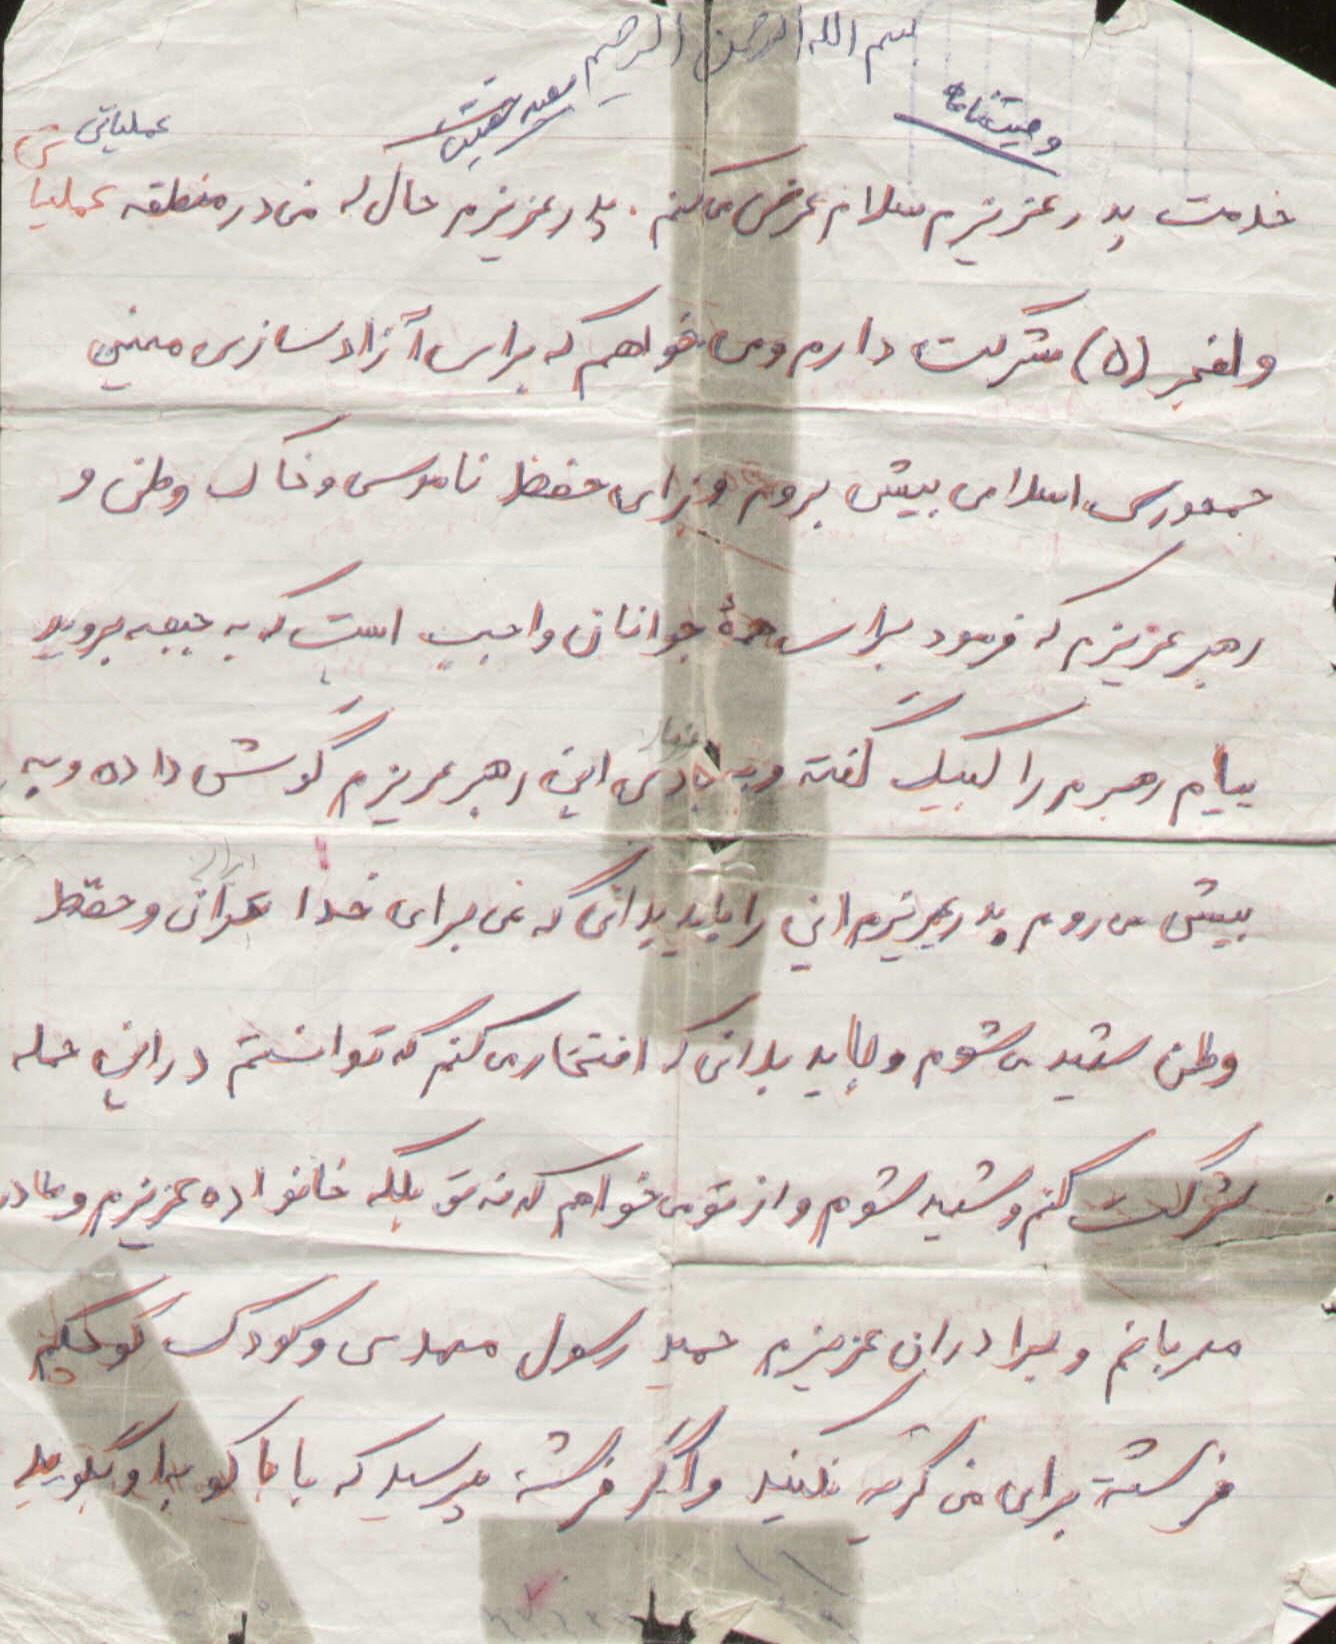 بسم الله الرحمن الرحیم
وصیتنامه
سعید
عملیاتی
خدمت پدر عزیزم سلام عرض می کنم . پدر عزیزم حال که من در منطقه عملیاتی
ولفجر (۵) شرکت دارم و می خواهم که برای آزادسازی میهنی
جمهوری اسلامی بیش بروم و برای حفظ ناموس و خاک وطن و
رهبر عزیزم که فرمود برای همهٔ جوانان واجب است که به جبهه بروید
پیام رهبرم را لبیک گفته و به این رهبر عزیزم گوش داده و به
بیش می روم پدر عزیزم این را باید بدانی که من برای خدا و حفظ
ایران
وطن شهید می شوم و باید بدانی که افتخار می کنم که توانستم در این حمله
شرکت کنم و شهید شوم و از تو می خواهم که نه تو بلکه خانواده عزیزم و مادر
مهربانم و برادران عزیزم حمید رسول مهدی و کودک کوچکم
فرشته برای من گریه نکنید و اگر فرشته پرسید که بابا کو به او بگویید